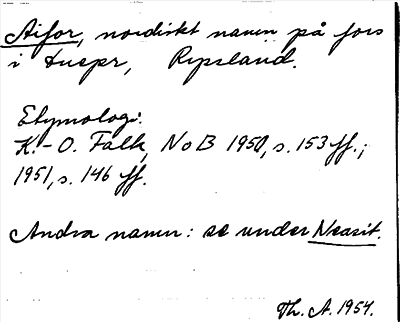 Aifor, nordiskt namn på fors
i Dnepr, Ryssland.
Etymologi:
K.-O. Falk, NoB 1950, s. 153 ff.;
1951, s. 146 ff.
Andra namn: se under Neasit.
Th. A. 1954.